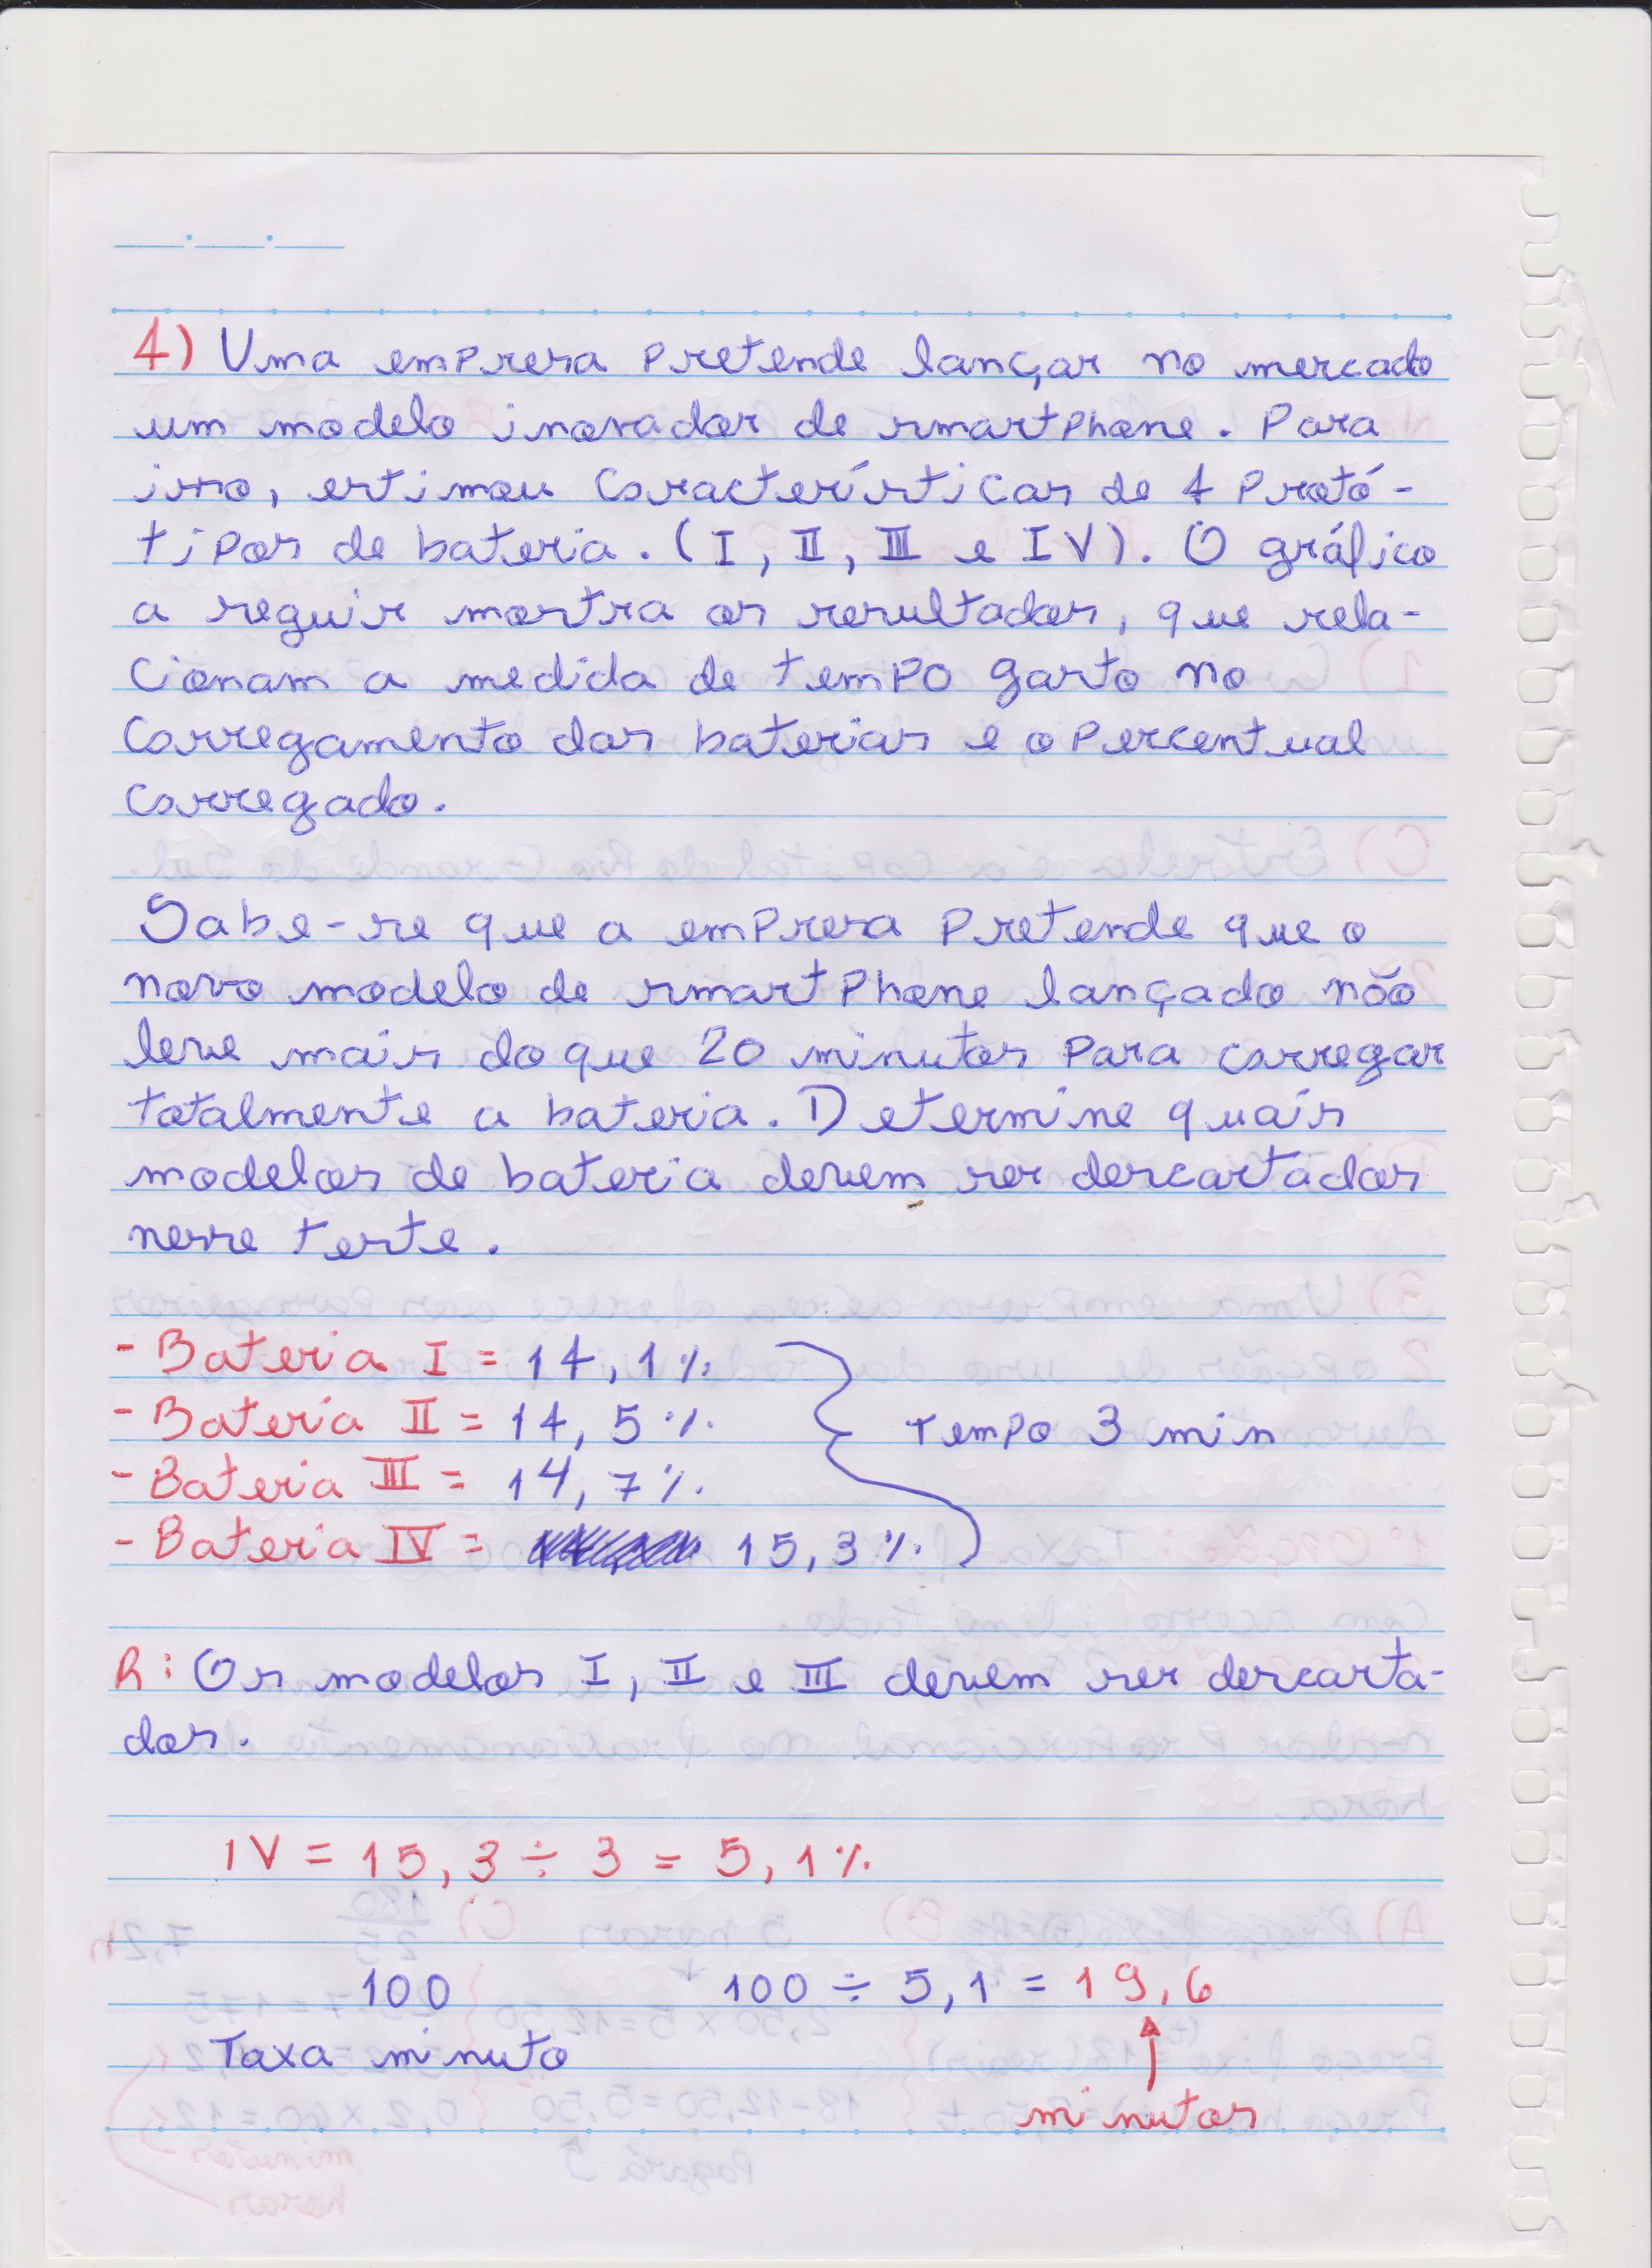 4) Uma empresa pretende lançar no mercado
um modelo inovador de smartphone. Para
isso, estimou características de 4 protó-
tipos de bateria. (I, II, III e IV). O gráfico
a seguir mostra os resultados, que rela-
cionam a medida de tempo gasto no
carregamento das baterias e o percentual
carregado.
Sabe-se que a empresa pretende que o
novo modelo de smartphone lançado não
leve mais do que 20 minutos para carregar
totalmente a bateria. Determine quais
modelos de bateria devem ser descartados
nesse teste.
- Bateria I = 14,1%
- Bateria II = 14,5%
Tempo 3 min
- Bateria III = 14,7%
- Bateria IV = 15,3%
R: Os modelos I, II e III devem ser descarta-
dos.
IV = 15,3 ÷ 3 = 5,1%
100 100 ÷ 5,1 = 19,6
Taxa minuto
minutos